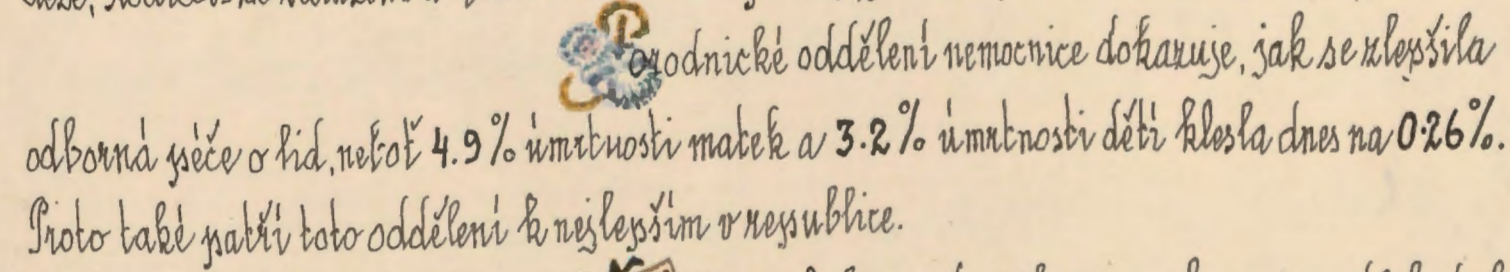 Porodnické oddělení nemocnice dokazuje, jak se zlepšila
odborná péče o lid, neboť 4.9% úmrtnosti matek a 3.2% úmrtnosti dětí klesla dnes na 0.26%.
Proto také patří toto oddělení k nejlepším v republice.